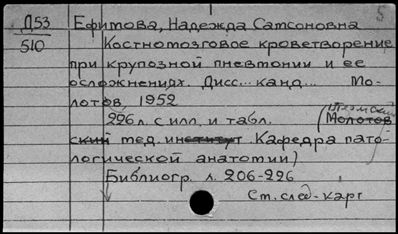 5
Д53 Ефимова, Надежда Самсоновна
510 Костномозговое кроветворение
при крупозной пневмонии и ее
осложнениях. Дисс... канд... Мо-
лотов, 1952
226 л. с илл. и табл. (Молотов
ский мед. институт. Кафедра пато-
логической анатомии)
Библиогр. л. 206-226
См. след. карт